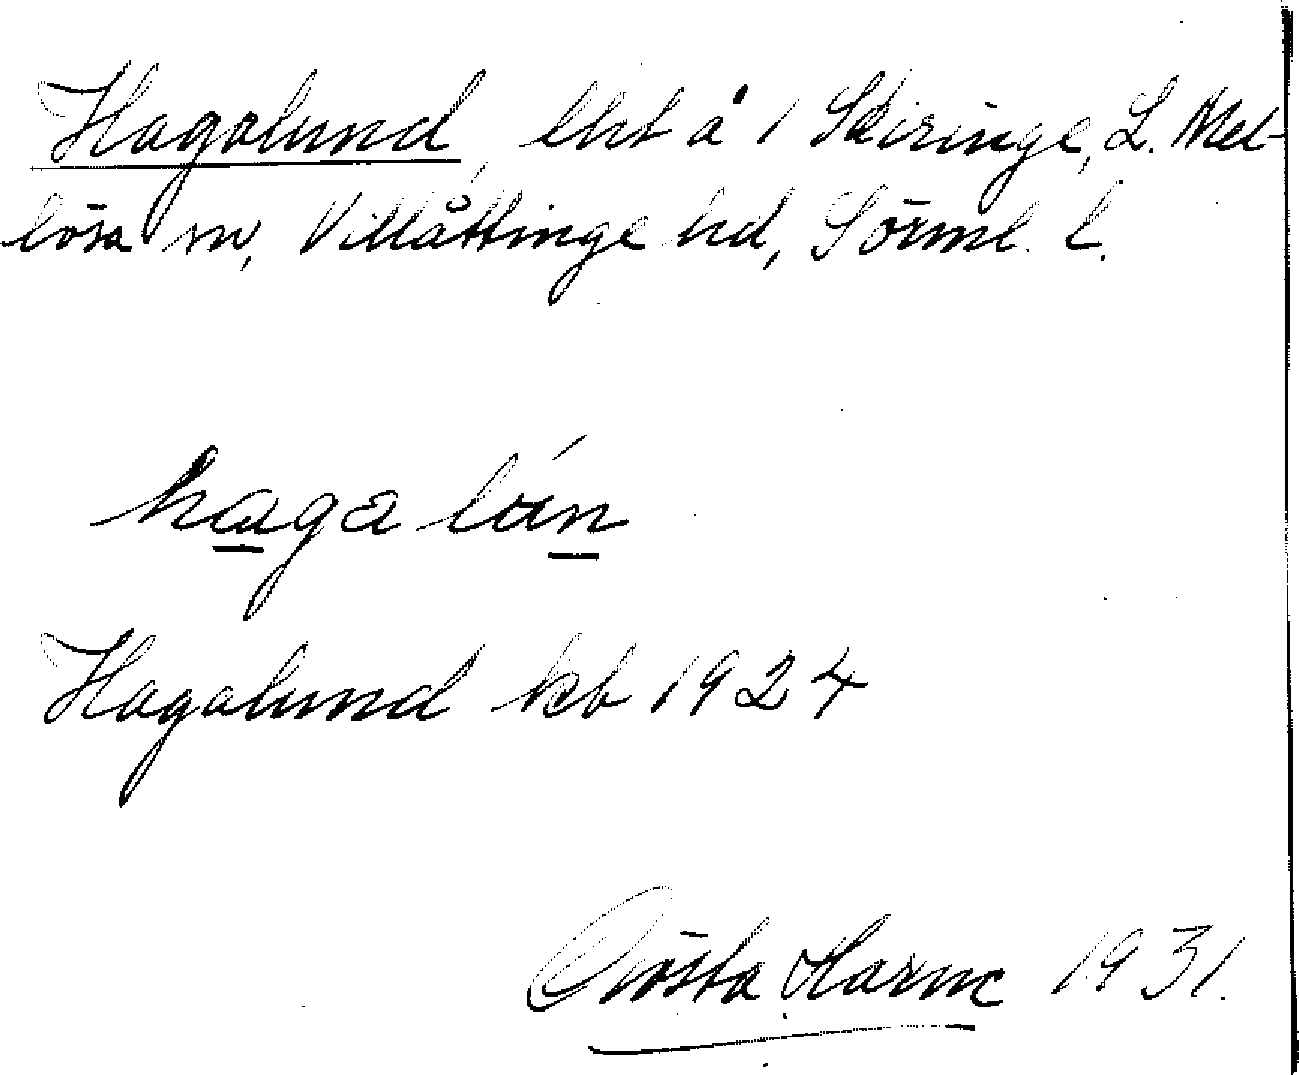 Hagalund, lht å 1 Skiringe, L. Mel-
lösa sn, Villåttinge hd, Sörml. l.
haga lun
Hagalund kb 1924
Gösta Harne 1931.